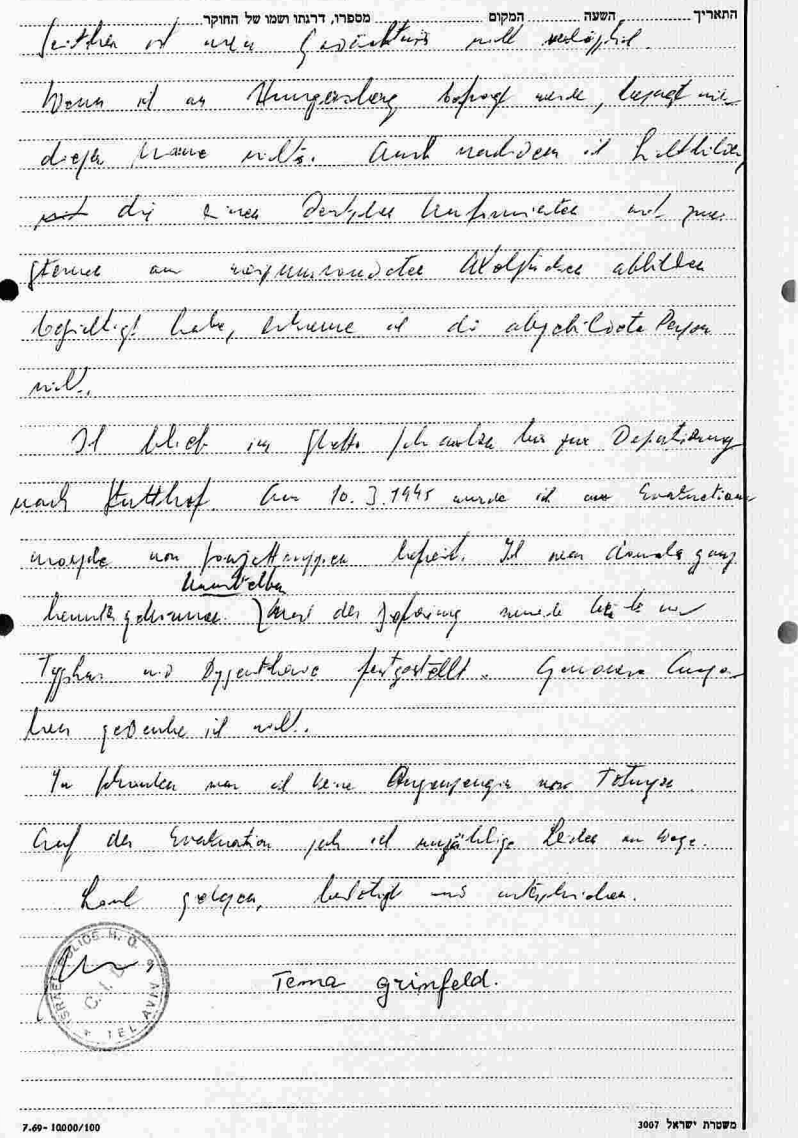 התאריך השעה המקום מספרו, דרגתו ושמו של החוקר
Seither ist mein Gedächtnis nicht verläßlich.
Wenn ich an Hungersberg befragt werde, besagt mir
dieser Name nichts. Auch nachdem ich Lichtbilder,
die einen Deutschen Uniformierten mit
Sterne am Achselstücken abbilden
besichtigt habe, erkenne ich die abgebildete Person
nicht.
Ich blieb im Ghetto Schaulen bis zur Deportierung
nach Stutthof. Am 10.3.1945 wurde ich am Evakuations
marsche von Sowjettruppen befreit. Ich war damals ganz
heruntergekommen. Unmittelbar nach der Befreiung wurde bei mir
Typhus und Dysentherie festgestellt. Genauere Anga-
ben gedenke ich nicht.
In Schaulen war ich keine Augenzeugin von Tötungen.
Auf der Evakuation sah ich unzählige Leichen am Wege.
Laut gelesen, bestätigt und unterschrieben.
ISRAEL POLICE H.Q.
TEL AVIV
Tema Grinfeld.
7.69-10.000/100 משטרת ישראל 3007